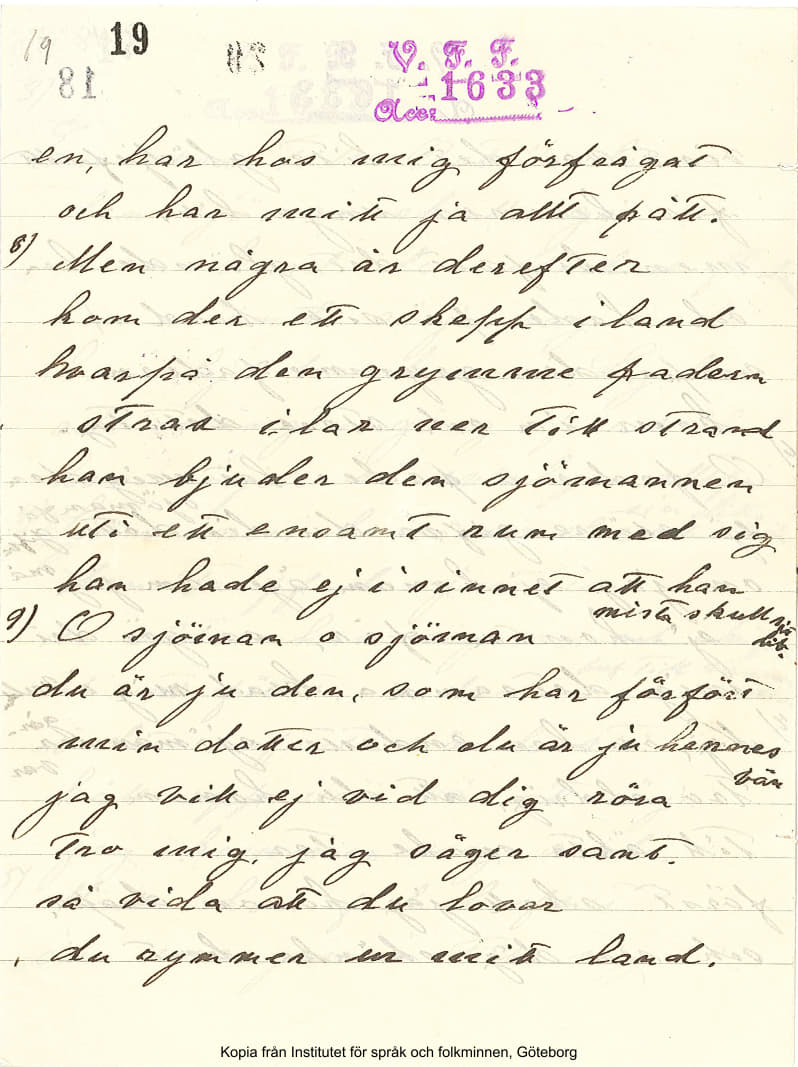 19 19
V. F. F.
1633
Acc:
en, har hos mig förfrågat
och har mitt ja allt fått.
8) Men några år derefter
kom der ett skepp i land
hvarpå den grymme fadern
strax ilar ner till strand
han bjuder den sjömannen
uti ett ensamt rum med sig
han hade ej i sinnet att han
mista skull sitt
lif.
9) O sjöman o sjöman
du är ju den, som har förfört
min dotter och du är ju hennes
vän
jag vill ej vid dig röra
tro mig, jag säger sant.
så vida att du lovar
du rymmer ur mitt land.
Kopia från Institutet för språk och folkminnen, Göteborg